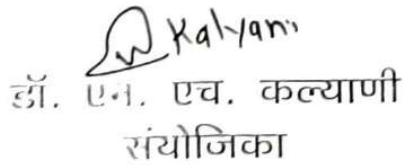 Kalyani
डॉ. एन. एच. कल्याणी
संयोजिका